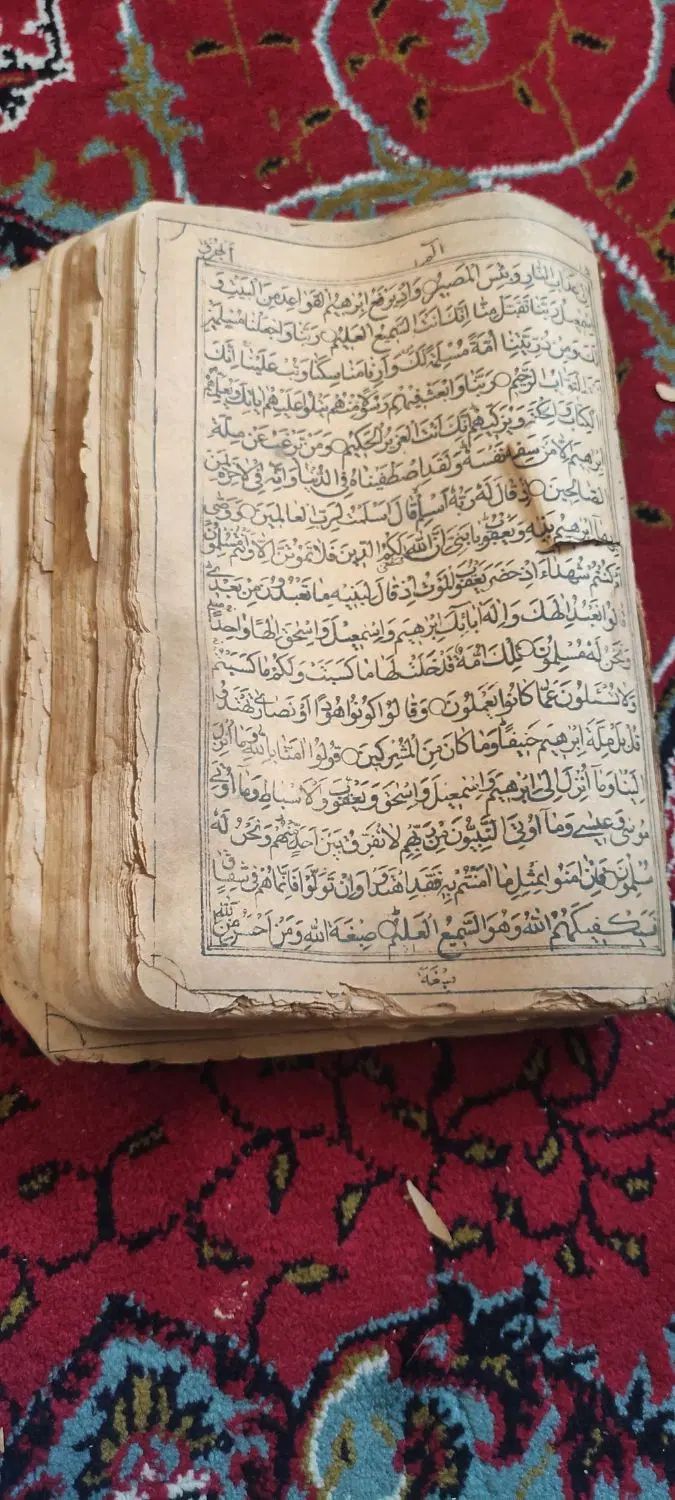 الجزؤ
الم
الى عذاب النار وبئس المصير واذ يرفع ابرهيم القواعد من البيت و
اسمعيل ربنا تقبل منا انك انت السميع العليم ربنا واجعلنا مسلمين
لك ومن ذريتنا امة مسلمة لك وارنا مناسكنا وتب علينا انك
انت التواب الرحيم ربنا وابعث فيهم رسولا منهم يتلوا عليهم اياتك ويعلمهم
الكتاب والحكمة ويزكيهم انك انت العزيز الحكيم ومن يرغب عن ملة
ابرهيم الا من سفه نفسه ولقد اصطفيناه في الدنيا وانه في الاخرة لمن
الصالحين اذ قال له ربه اسلم قال اسلمت لرب العالمين ووصى
بها ابرهيم بنيه ويعقوب يا بني ان الله لكم الدين فلا تموتن الا وانتم مسلمون
ام كنتم شهداء اذ حضر يعقوب الموت اذ قال لبنيه ما تعبدون من بعدي
قالوا نعبد الهك واله ابائك ابرهيم واسمعيل واسحق الها واحدا
ونحن له مسلمون تلك امة قد خلت لها ما كسبت ولكم ما كسبتم
ولا تسئلون عما كانوا يعملون وقالوا كونوا هودا او نصارى تهتدوا
قل بل ملة ابرهيم حنيفا وما كان من المشركين قولوا امنا بالله وما انزل
الينا وما انزل الى ابرهيم واسمعيل واسحق ويعقوب والاسباط وما اوتي
موسى وعيسى وما اوتي النبيون من ربهم لا نفرق بين احد منهم ونحن له
مسلمون فان امنوا بمثل ما امنتم به فقد اهتدوا وان تولوا فانما هم في شقاق
فسيكفيكهم الله وهو السميع العليم صبغة الله ومن احسن من الله